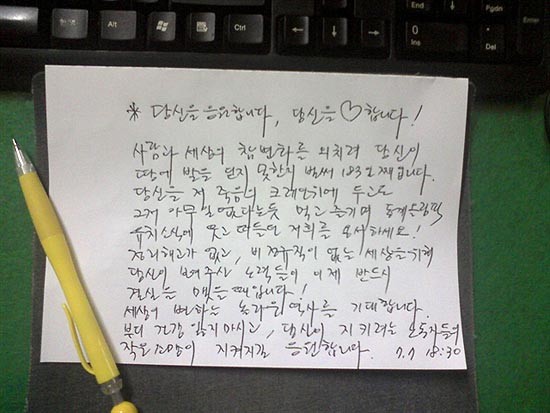 Alt
Ctrl
Alt
Ctrl
0
Ins
Pgdn
Enter
Del
* 당신을 응원합니다, 당신을 ♡합니다!
사람과 세상의 참변화를 외치려 당신이
땅에 발을 딛지 못한지 벌써 183일째입니다.
당신을 저 죽음의 크레인위에 두고도
그저 아무일 없다는듯 먹고 즐기며 동계올림픽
유치소식에 웃고 떠들던 저희를 용서하세요!
정리해고가 없고, 비정규직이 없는 세상을 위해
당신이 보여주신 노력들이 이제 반드시
결실을 맺을때입니다!
세상이 변하는 놀라운 역사를 기대합니다.
부디 건강 잃지마시고, 당신이 지키려는 노동자들의
작은소망이 지켜지길 응원합니다. 7.7 18:30